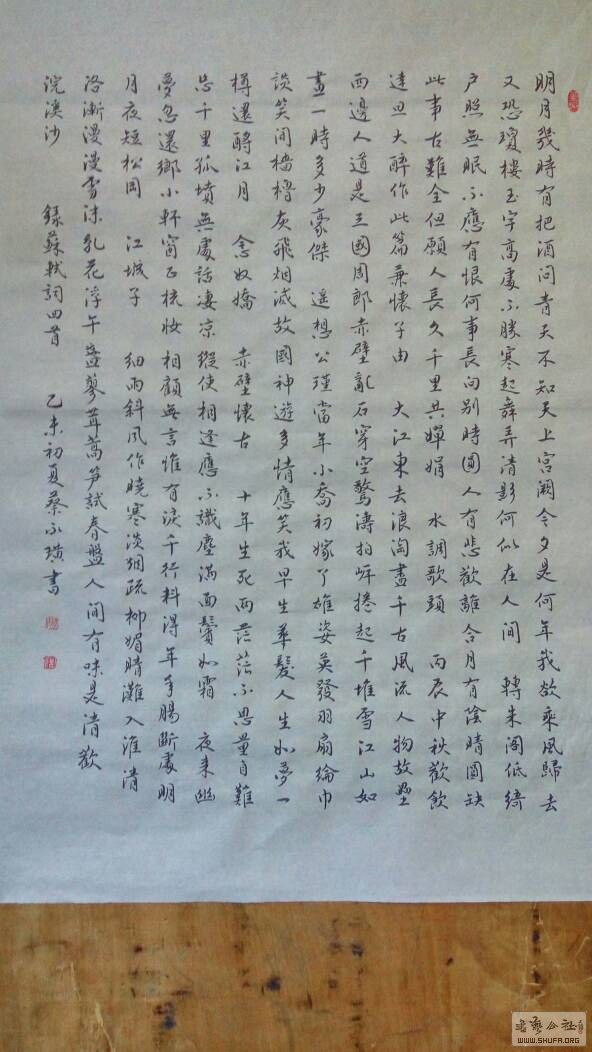 明月幾時有把酒问青天不知天上宫阙今夕是何年我欲乘风歸去
又恐瓊楼玉宇高處不勝寒起舞弄清影何似在人间 轉朱阁低绮
户照無眠不應有恨何事長向别時圆人有悲歡離合月有陰晴圆缺
此事古難全但願人長久千里共嬋娟 水調歌頭 丙辰中秋歡飲
達旦大醉作此篇兼懷子由 大江東去浪淘盡千古風流人物故壘
西邊人道是三國周郎赤壁亂石穿空驚濤拍岸捲起千堆雪江山如
畫一時多少豪傑 遥想公瑾當年小喬初嫁了雄姿英發羽扇綸巾
談笑间樯橹灰飛烟滅故國神遊多情應笑我早生華髮人生如夢一
樽還酹江月 念奴嬌 赤壁懷古 十年生死兩茫茫不思量自難
忘千里孤墳無處話凄凉縱使相逢應不識塵滿面鬢如霜 夜来幽
夢忽還鄉小軒窗正梳妝相顧無言惟有淚千行料得年年腸斷處明
月夜短松岡 江城子 细雨斜風作曉寒淡烟疏柳媚晴灘入淮清
洛漸漫漫雪沫乳花浮午盏蓼茸蒿笋試春盤人间有味是清歡
浣溪沙 録蘇軾詞四首 乙未初夏蔡永璜書
書藝公社
WWW.SHUFA.ORG